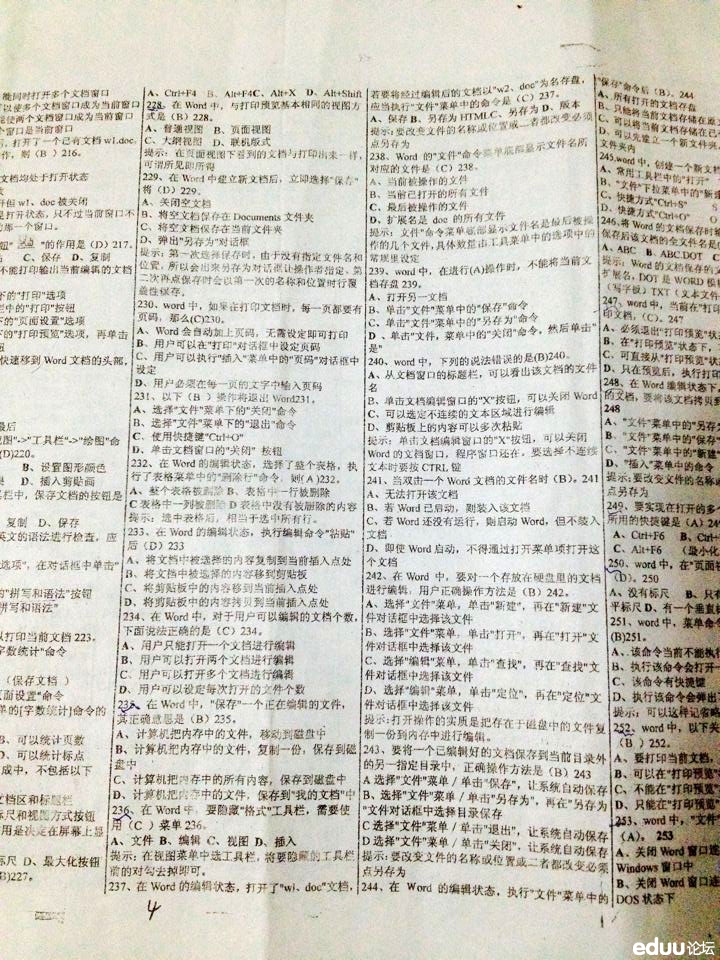 能同时打开多个文档窗口
可以使多个文档窗口成为当前窗口
能使两个文档窗口成为当前窗口
个窗口是当前窗口
,打开了一个已有文档 w1.doc,
作,则(B)216。
文档均处于打开状态
开但 w1、doc 被关闭
是打开状态,只不过当前窗口不
的那一个窗口。
钮" "的作用是(D)217。
C、保存 D、复制
不能打印输出当前编辑的文档
下的"打印"选项
栏中的"打印"按钮
下的"页面设置"选项
下的"打印预览"选项,再单击
快速移到 Word 文档的头部,
最后
视图"->"工具栏"->"绘图"命
(D)220。
B、设置图形颜色
果 D、插入剪贴画
具栏中,保存文档的按钮是
复制 D、保存
英文的语法进行检查,应
选项",在对话框中单击"
的"拼写和语法"按钮
拼写和语法"
以打印当前文档 223。
字数统计"命令
(保存文档)
页面设置"命令
单的[字数统计]命令的
B、可以统计页数
D、可以统计标点
成中,不包括以下
文档区和标题栏
标尺和视图方式按钮
作用是决定在屏幕上显
标尺 D、最大化按钮
B)227。
A、Ctrl+F4 B、Alt+F4C、Alt+X D、Alt+Shift
228、在 Word 中,与打印预览基本相同的视图方
式是(B)228。
A、普通视图 B、页面视图
C、大纲视图 D、联机版式
提示:在页面视图下看到的文档与打印出来一样,
可谓所见即所得
229、在 Word 中建立新文档后,立即选择"保存"
将(D)229。
A、关闭空文档
B、将空文档保存在 Documents 文件夹
C、将空文档保存在当前文件夹
D、弹出"另存为"对话框
提示:第一次选择保存时,由于没有指定文件名和
位置,所以会出来另存为对话框让操作者指定。第
二次再点保存时会以第一次的名称和位置时行覆
盖性保存。
230、word 中,如果在打印文档时,每一页都要有
页码,那么(C)230。
A、Word 会自动加上页码,无需设定即可打印
B、用户可以在"打印"对话框中设定页码
C、用户可以执行"插入"菜单中的"页码"对话框中
设定
D、用户必须在每一页的文字中输入页码
231、以下(B )操作将退出 Word231。
A、选择"文件"菜单下的"关闭"命令
B、选择"文件"菜单下的"退出"命令
C、使用快捷键"Ctrl+O"
D、单击文档窗口的"关闭" 按钮
232、在 Word 的编辑状态,选择了整个表格,执
行了表格菜单中的"删除行"命令,则(A )232。
A、整个表格被删除 B、表格中一行被删除
C 表格中一列被删除 D 表格中没有被删除的内容
提示:选中表格后,相当于选中所有行。
233、在 Word 的编辑状态,执行编辑命令"粘贴"
后(D)233
A、将文档中被选择的内容复制到当前插入点处
B、将文档中被选择的内容移到剪贴板
C、将剪贴板中的内容移到当前插入点处
D、将剪贴板中的内容拷贝到当前插入点处
234、在 Word 中,对于用户可以编辑的文档个数,
下面说法正确的是(C)234。
A、用户只能打开一个文档进行编辑
B、用户可以打开两个文档进行编辑
C、用户可以打开多个文档进行编辑
D、用户可以设定每次打开的文件个数
235、在 Word 中,"保存"一个正在编辑的文件,
其正确意思是(B)235。
A、计算机把内存中的文件,移动到磁盘中
B、计算机把内存中的文件,复制一份,保存到磁
盘中
C、计算机把内存中的所有内容,保存到磁盘中
D、计算机把内存中的文件,保存到"我的文档"中
236、在 Word 中,要隐藏"格式"工具栏,需要使
用(C )菜单 236。
A、文件 B、编辑 C、视图 D、插入
提示:在视图菜单中选工具栏,将要隐藏的工具栏
前的对勾去掉即可。
237、在 Word 的编辑状态,打开了"wl、doc"文档,
若要将经过编辑后的文档以"w2、doc"为名存盘,
应当执行"文件"菜单中的命令是(C)237。
A、保存 B、另存为 HTMLC、另存为 D、版本
提示:要改变文件的名称或位置或二者都改变必须
点另存为
238、Word 的"文件"命令菜单底部显示文件名所
对应的文件是(C)238。
A、当前被操作的文件
B、当前已打开的所有文件
C、最后被操作的文件
D、扩展名是 doc 的所有文件
提示:文件"命令菜单底部显示文件名是最后被操
作的几个文件,具体数量由工具菜单中的选项中的
常规里设定
239、word 中,在进行(A)操作时,不能将当前文
档存盘 239。
A、打开另一文档
B、单击"文件"菜单中的"保存"命令
C、单击"文件"菜单中的"另存为"命令
D、单击"文件,菜单中的"关闭"命令,然后单击"
是"
240、word 中,下列的说法错误的是(B)240。
A、从文档窗口的标题栏,可以看出该文档的文件
名
B、单击文档编辑窗口的"X"按钮,可以关闭 Word
C、可以选定不连续的文本区域进行编辑
D、剪贴板上的内容可以多次粘贴
提示:单击文档编辑窗口的"X"按钮,可以关闭
Word 的文档窗口,程序窗口还在。要选择不连续
文本时要按 CTRL 键
241、当双击一个 Word 文档的文件名时(B)。241
A、无法打开该文档
B、若 Word 已启动,则装入该文档
C、若 Word 还没有运行,则启动 Word,但不装入
文档
D、即使 Word 启动,不得通过打开菜单项打开这
个文档
242、在 Word 中,要对一个存放在硬盘里的文档
进行编辑,用户正确操作方法是(B)242。
A、选择"文件"菜单,单击"新建",再在"新建"文
件对话框中选择该文件
B、选择"文件"菜单,单击"打开",再在"打开"文
件对话框中选择该文件
C、选择"编辑"菜单,单击"查找",再在"查找"文
件对话框中选择该文件
D、选择"编辑"菜单,单击"定位",再在"定位"文
件对话框中选择该文件
提示:打开操作的实质是把存在于磁盘中的文件复
制一份到内存中进行编辑。
243、要将一个已编辑好的文档保存到当前目录外
的另一指定目录中,正确操作方法是(B)243
A 选择"文件"菜单/单击"保存",让系统自动保存
B、选择"文件"菜单/单击"另存为",再在"另存为
"文件对话框中选择目录保存
C 选择"文件"菜单/单击"退出",让系统自动保存
D 选择"文件"菜单/单击"关闭",让系统自动保存
提示:要改变文件的名称或位置或二者都改变必须
点另存为
244、在 Word 的编辑状态,执行"文件"菜单中的
"保存"命令后(B)。244
A、所有打开的文档存盘
B、只能将当前文档存储在原文
C、可以将当前文档存储在已
D、可以先建立一个新文件夹,
文件夹内
245.word 中,创建一个新文档
A、常用工具栏中的"打开"
B、"文件"下拉菜单中的"新建
C、快捷方式"Ctrl+S"
D、快捷方式"Ctrl+O"
246、将 Word 的文档保存时输
保存后该文档的全文件名是(
A、ABC B、ABC.DOT C
提示:Word 的文档保存的
扩展名,DOT 是 WORD 模板
(写字板)TXT(文本文件
247、word 中,当前在"打印
印文档,(C)。247
A、必须退出"打印预览"状态
B、在"打印预览"状态下,
C、可直接从"打印预览"状
D、只在预览后,执行打印
248、在 Word 编辑状态下,
的文档,要将该文档拷贝到
248
A、"文件"菜单中的"另存为
B、"文件"菜单中的"保存"
C、"文件"菜单中的"新建"
D、"插入"菜单中的命令
提示:要改变文件的名称或
点另存为
249、要实现在打开的多个
所用的快捷是(A)249
A、Ctrl+F6 B、Ctrl+F
C、Alt+F6 (最小化
250、word 中,在"页面
(D)。250
A、没有标尺 B、只有
平标尺 D、有一个垂直
251、word 中,菜单命令
(B)251。
A、该命令当前不能执行
B、执行该命令会打开一
C、该命令有快捷键
D、执行该命令会弹出
提示:可以这样记省略
252、word 中,以下关
(B )252。
A、要打印当前文档,
B、可以在"打印预览"
C、不能在"打印预览"
D、只能在"打印预览"
253、word 中,"文件"
(A)。253
A、关闭 Word 窗口连
Windows 窗口中
B、关闭 Word 窗口连
DOS 状态下
4
eduu论坛